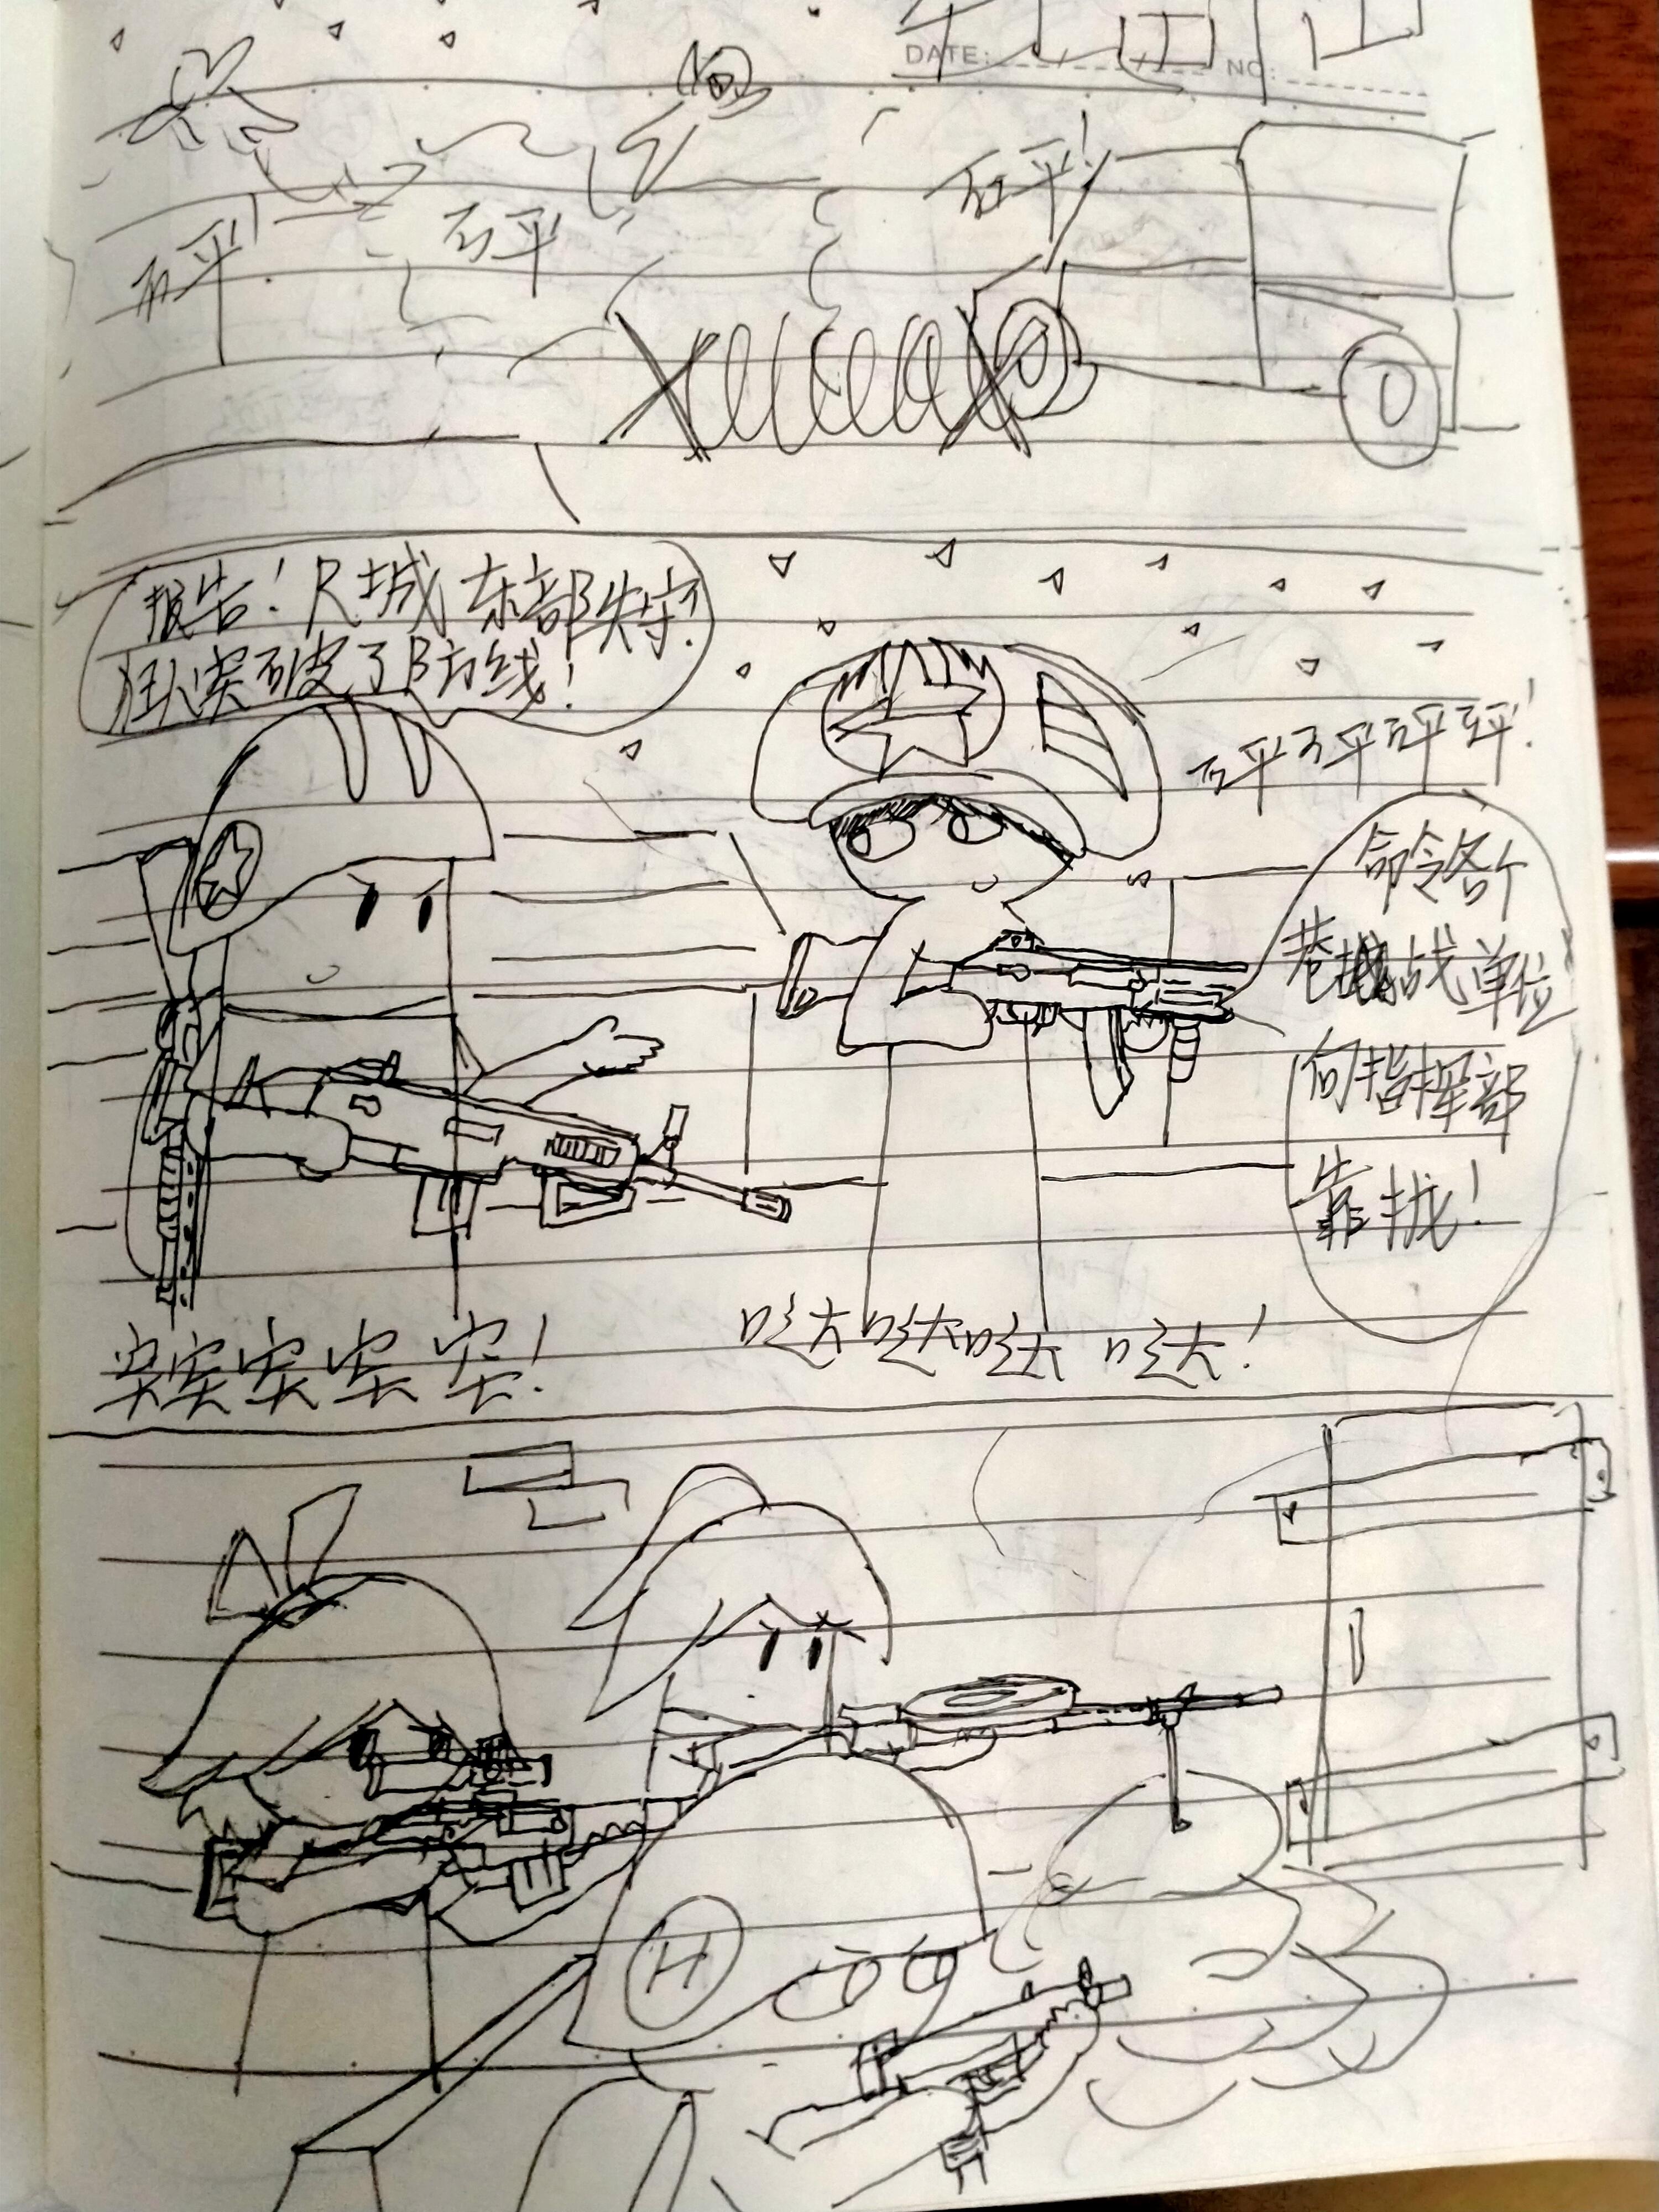 DATE: NO:
砰!
砰!
砰
报告！R城东部失守！
狂人突破了B方线！
砰砰砰砰！
命令各个
巷战单位
向指挥部
靠拢！
突突突突突！
哒哒哒哒！
H